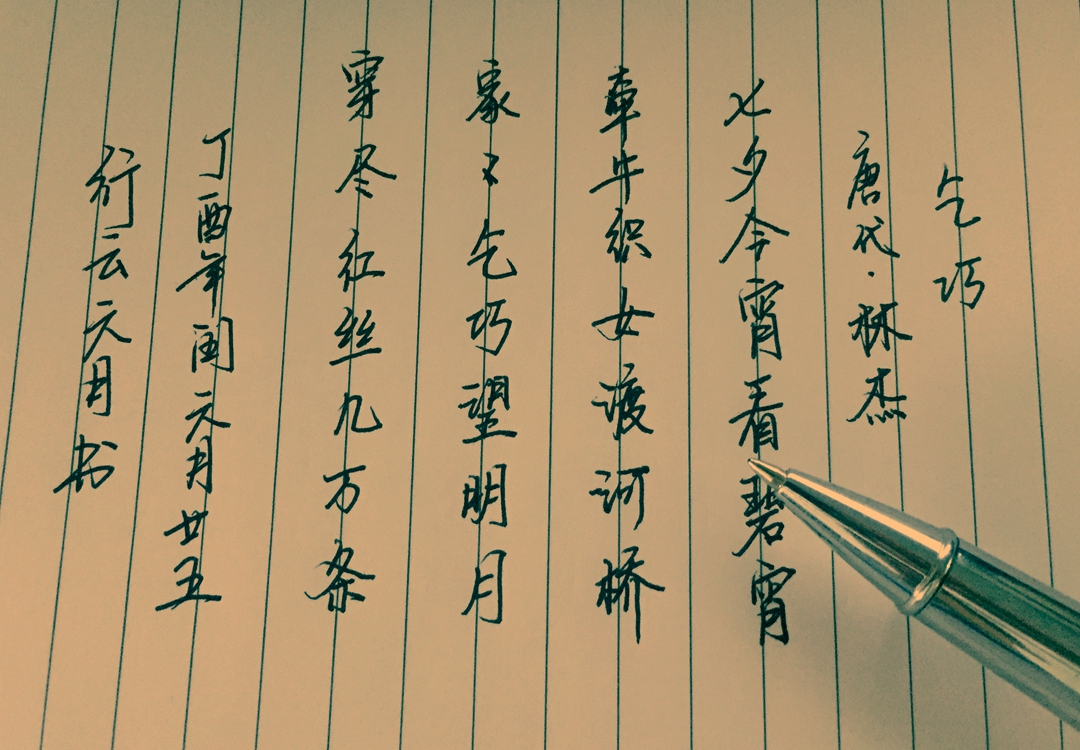 乞巧
唐代·林杰
七夕今宵看碧宵
牵牛织女渡河桥
家々乞巧望明月
穿尽红丝九万条
丁酉年闰六月廿五
行云元月书